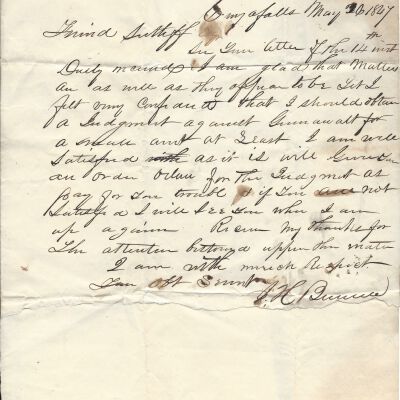 Cuyafalls May 26 1847
Friend Sutliff
Sir Your letter of the 14th inst
Duly received I am glad that Matters
are as well as they appear to be Yet I
felt very Confident that I should obtain
a Judgment against for
a small amt at Least I am well
Satisfied with as it is will Give you
an order on for the Judgment as
pay for your trouble & if You are not
Satisfied I will See you when I am
up again Receive My thanks for
The attention bestowed upon this matter
I am with much Respect
Your Obt Servt